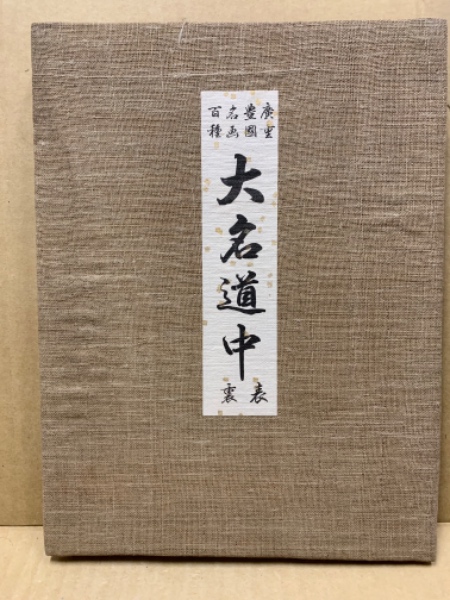 廣重
豊國
名画
百種
大名道中
表裏